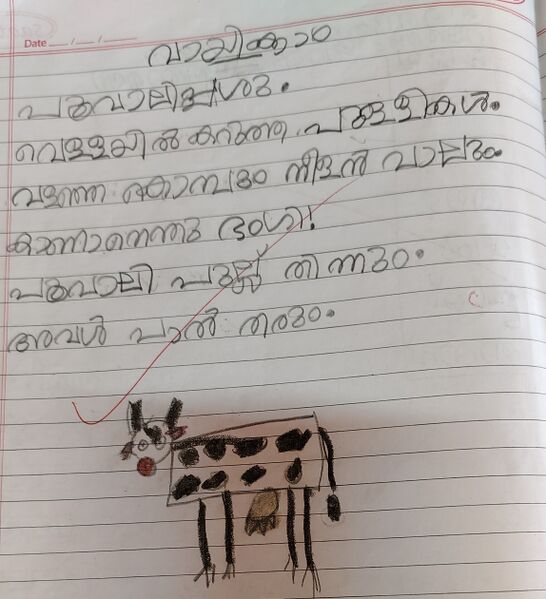 Date __/__/__
വായിക്കാം
പൂവാലിപ്പശു.
വെള്ളയിൽ കറുത്ത പുള്ളികൾ.
വളഞ്ഞ കൊമ്പും നീളൻ വാലും.
കാണാനെന്തു ഭംഗി!
പൂവാലി പുല്ല് തിന്നും.
അവൾ പാൽ തരും.